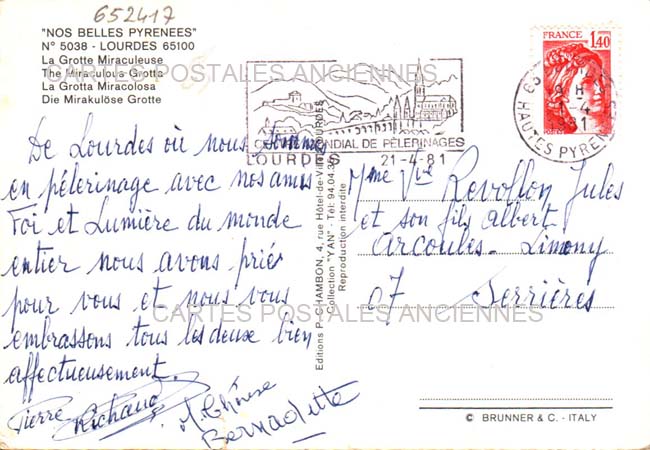 652417
"NOS BELLES PYRENEES"
N° 5038 - LOURDES 65100
La Grotte Miraculeuse
The Miraculous Grotta
La Grotta Miracolosa
Die Mirakulöse Grotte
CARTES POSTALES ANCIENNES
De Lourdes où nous sommes
en pélerinage avec nos amis
Foi et Lumière du monde
entier nous avons prié
pour vous et nous vous
embrassons tous les deux bien
affectueusement.
Pierre Richaud
M. Thérèse
Bernadette
CARTES POSTALES ANCIENNES
MONDIAL DE PÈLERINAGES
LOURDES 21-4-81
FRANCE 1,40
HAUTES PYRENEES
Editions P. CHAMBON, 4, rue Hôtel-de-Ville LOURDES
Collection "YAN" - Tél: 94.04.
Reproduction interdite
Mme Vve Revollon Jules
et son fils Albert
Arcoules - Limony
07 Serrières
© BRUNNER & C. - ITALY